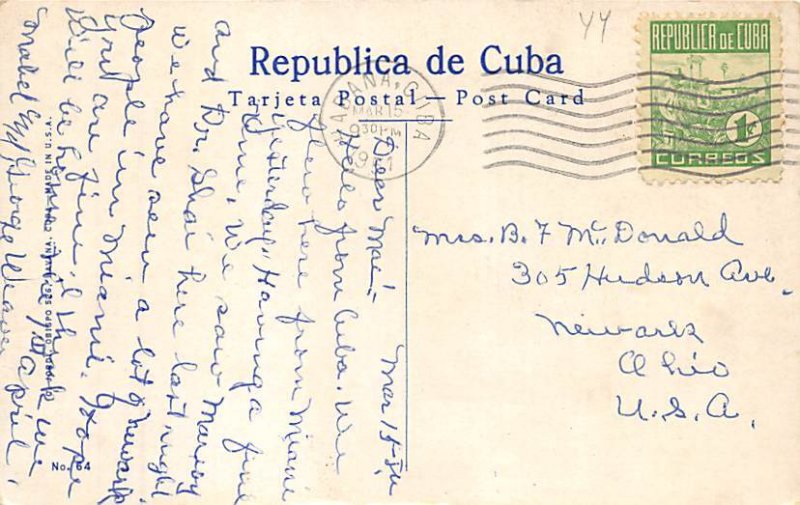 44
Republica de Cuba
Tarjeta Postal — Post Card
REPUBLICA DE CUBA
1c
CORREOS
HABANA, CUBA
MAR 15
930 PM
Mar 15th
Dear Mae:-
Hello from Cuba. We
flew here from Miami
yesterday. Having a fine
time. We saw
and Dr. here last night
we have seen a lot of Newark
people in Miami. Hope
you are fine. I think we
will be home the 1st April.
Mabel & George Weaver
Mrs. B. F McDonald
305 Hudson Ave.
Newark
Ohio
U.S.A.
MADE IN U.S.A.
No. 64